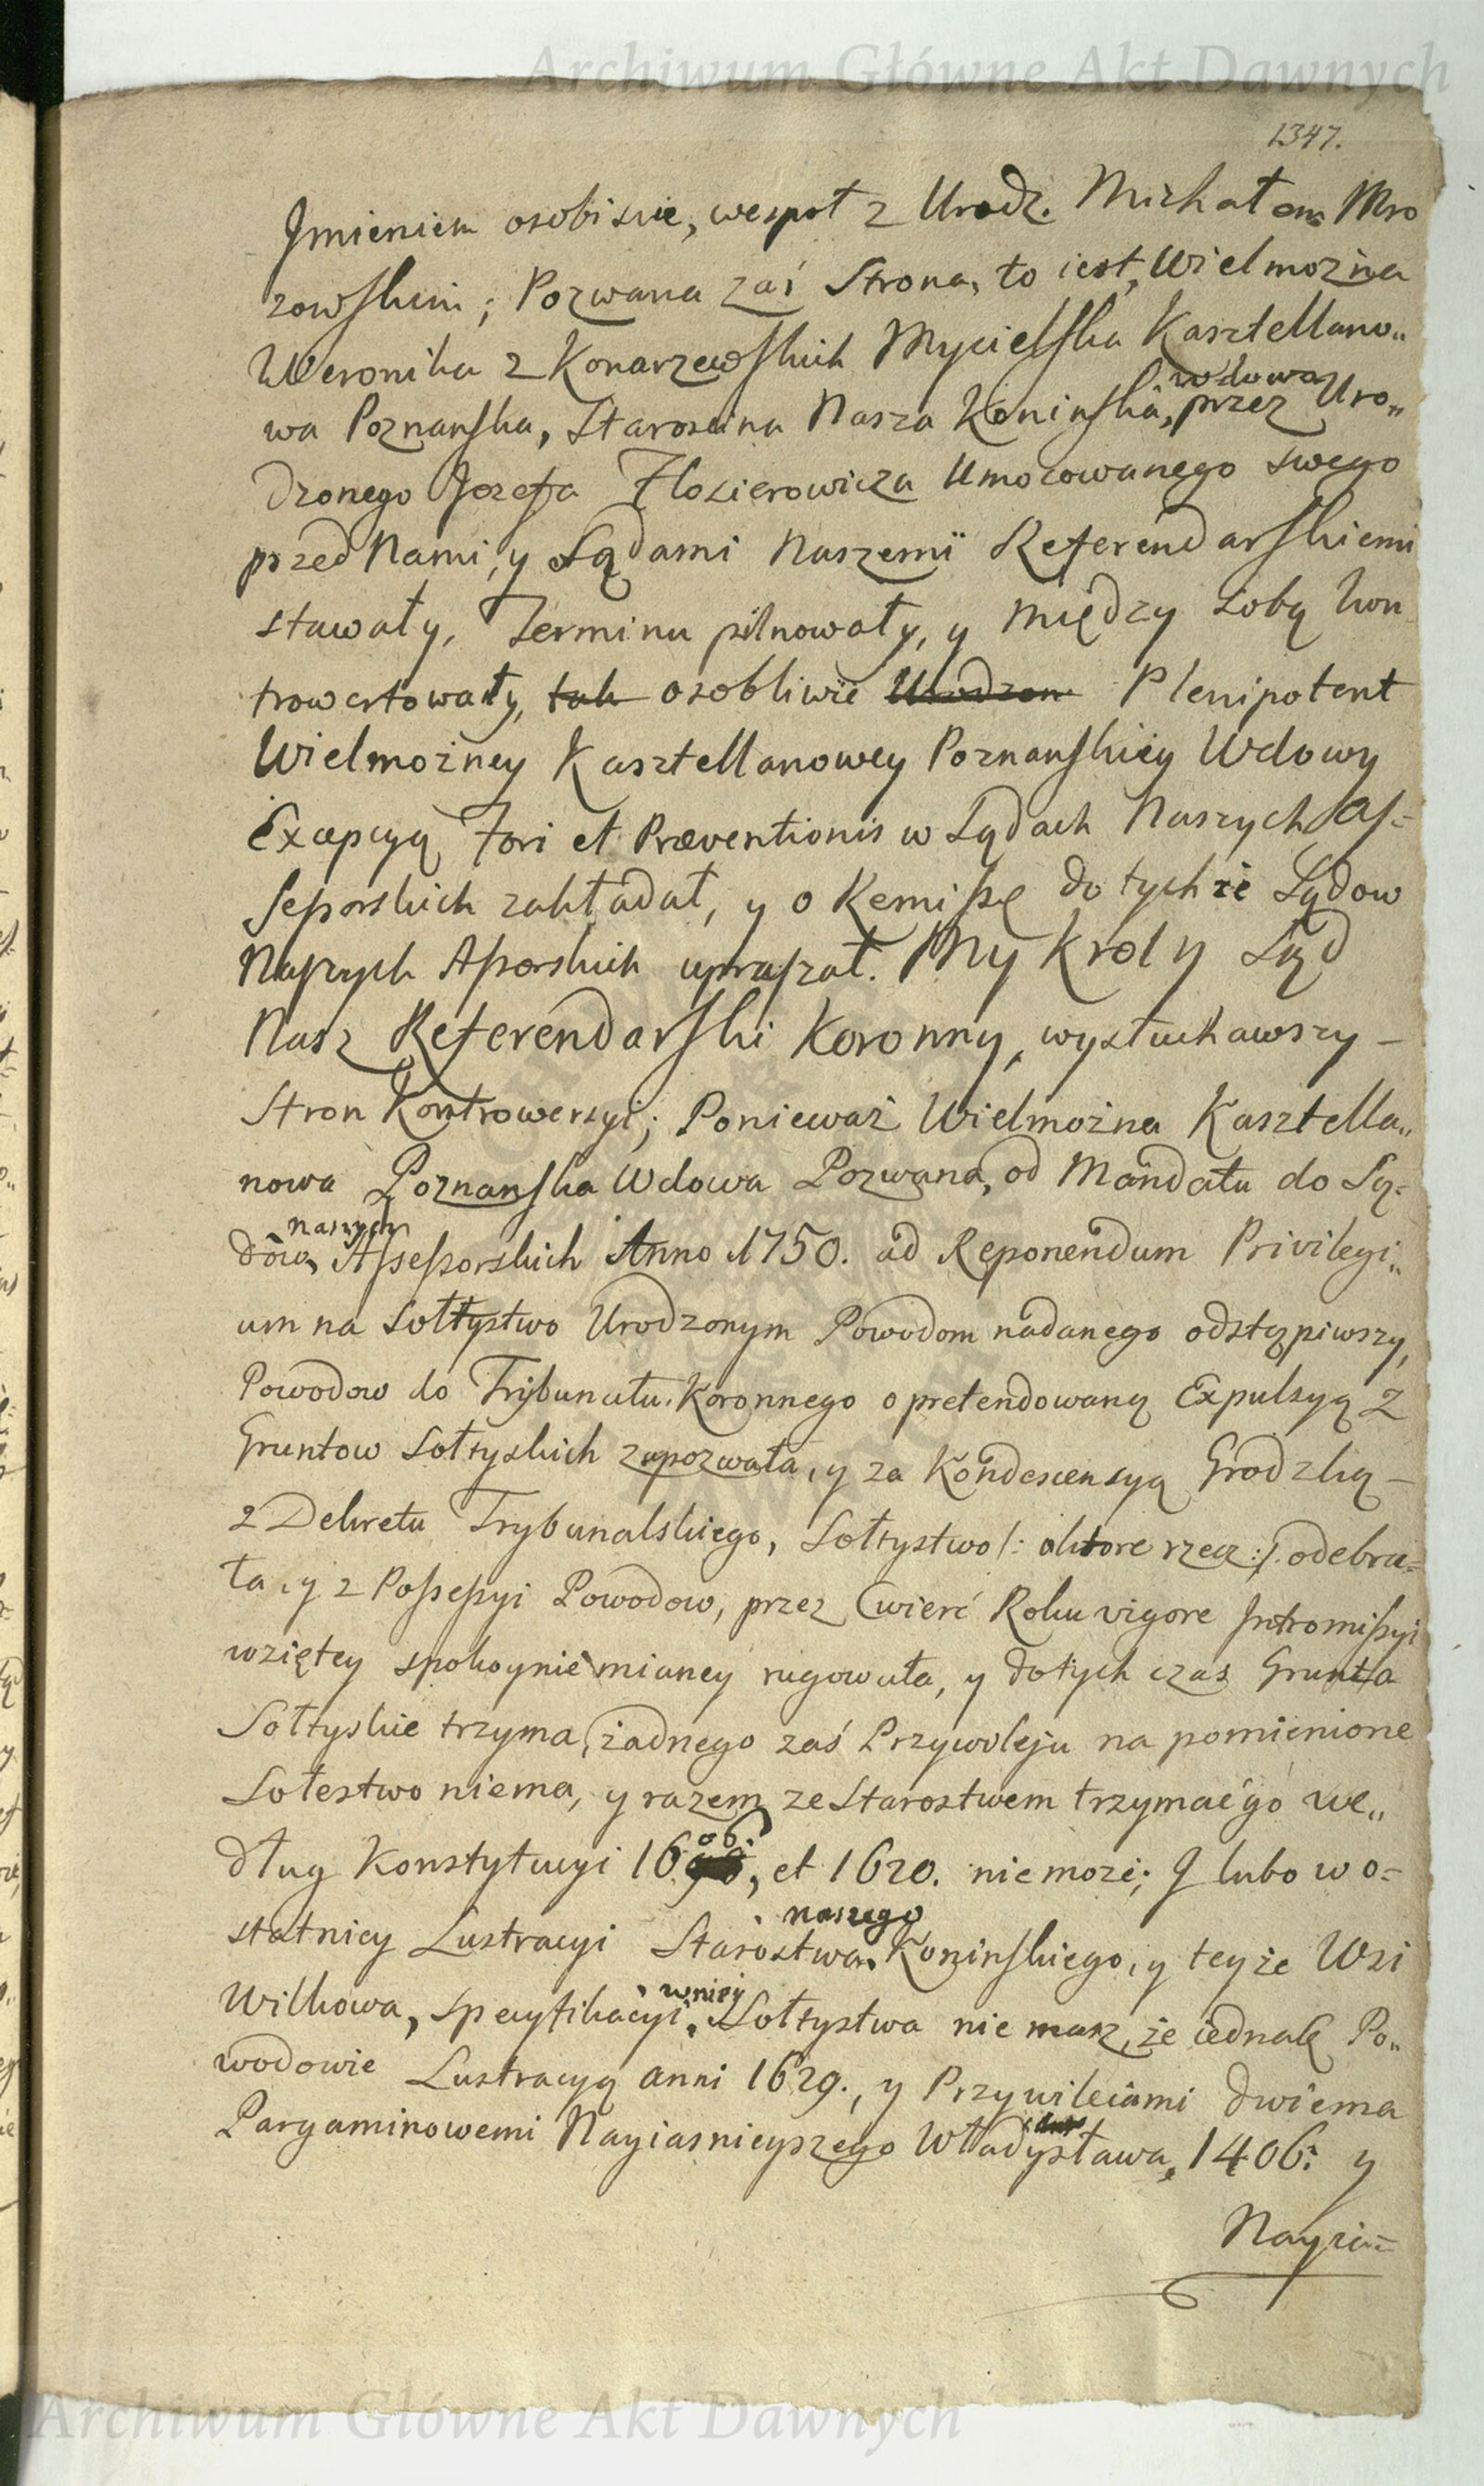 Archiwum Główne Akt Dawnych
1347.
Jmieniem osobiscie, wespoł z Urodz. Michałem Mro
zowskim; Pozwana zaś Strona, to iest, Wielmożna
Weronika z Konarzewskich Mycielska Kasztellano„
wdowa
wa Poznanska, Staroscina Nasza Koninska, przez Uro„
dzonego Jozefa Flosierowicza Umocowanego swego
przed Nami, y Sądami Naszemi Referendarskiemi
stawały, Terminu pilnowały, y między sobą kon
trowertowały, tak osobliwie Urodzon Plenipotent
Wielmożney Kasztellanowey Poznanskiey Wdowy
Excepcyą Fori et Præventionis w Sądach Naszych As=
sessorskich zakładał, y o Remissę do tychże Sądow
Naszych Assorskich upraszał. My Krol y Sąd
Nasz Referendarski Koronny, wysłuchawszy –
Stron Kontrowersyi; Ponieważ Wielmożna Kasztella„
nowa Poznanska Wdowa Pozwana, od Mandatu do Są=
naszych
dów, Assessorskich Anno 1750. ad Reponendum Privilegi„
um na Sołtystwo Urodzonym Powodom nadanego odstąpiwszy,
Powodow do Trybunału Koronnego o pretendowaną Expulsyą z
Gruntow Sołtyskich zapozwała, y za Kondescensyą Grodzką –
z Dekretu Trybunalskiego, Sołtystwo /: aktore rzecz :/ odebra=
ła, y z Possessyi Powodow, przez Cwierć Roku vigore Intromissyi
wziętey spokoynie mianey rugowała, y dotych czas Grunta
Sołtyskie trzyma, żadnego zaś Przywileju na pomienione
Sołestwo niema, y razem ze Starostwem trzymać go we„
ob
dług Konstytucyi 16, et 1620. nie może; J lubo w o=
naszego
statniey Lustracyi Starostwa Koninskiego, y teyże Wsi
w niey
Wilkowa, specyfikacyi, Sołtystwa nie masz, że iednak Po„
wodowie Lustracyą anni 1629., y Przywileiami dwiema
Pargaminowemi Nayiasnieyszego Władysława, 1406: y
Nayia=
Archiwum Główne Akt Dawnych